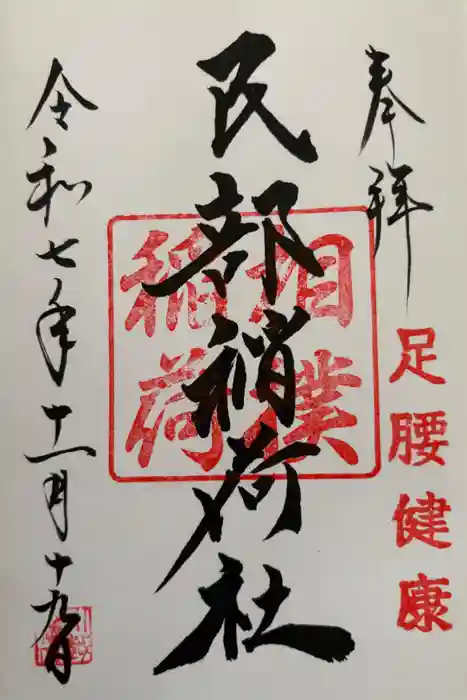 奉拝
足腰健康
民部稲荷社
相撲稲荷
令和七年十一月十九日